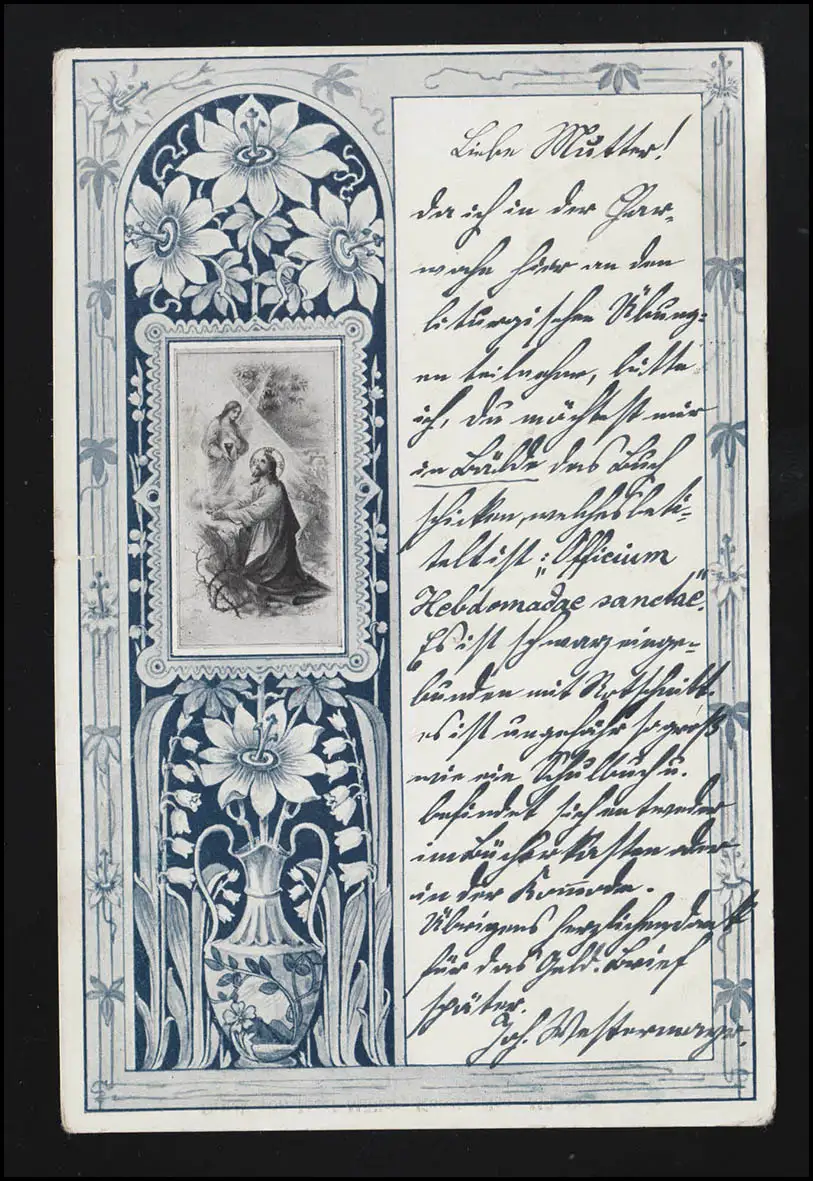 Liebe Mutter!
da ich in der Char-
woche hier an den
liturgischen Übung-
en teilnehme, bitte
ich, du möchtest mir
in Bälde das Buch
schicken, welches beti-
telt ist: „Officium
Hebdomadae sanctae“.
Es ist schwarz einge-
bunden mit Rotschnitt.
es ist ungefähr so groß
wie ein Schulbuch u.
befindet sich entweder
im Bücherkasten oder
in der Kommode.
Übrigens herzlichen Dank
für das Geld. Brief
später.
Joh. Westermayr.